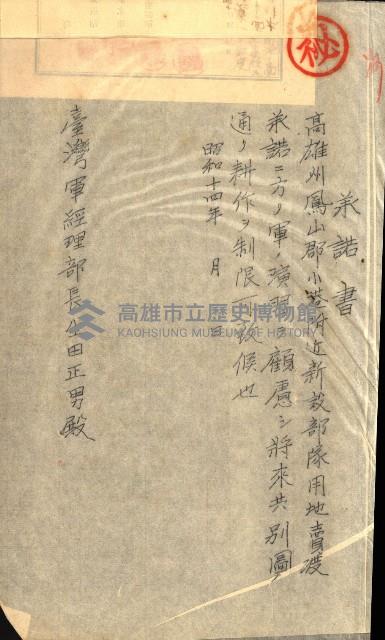 秘
承諾書
高雄州鳳山郡小港附近新設部隊用地賣渡
承諾ニ方リ軍ノ演習ヲ顧慮シ將來共別圖
通リ耕作ヲ制限
候也
昭和十四年 月 日
臺灣軍經理部長
田正男殿
高雄市立歷史博物館
KAOHSIUNG MUSEUM OF HISTORY